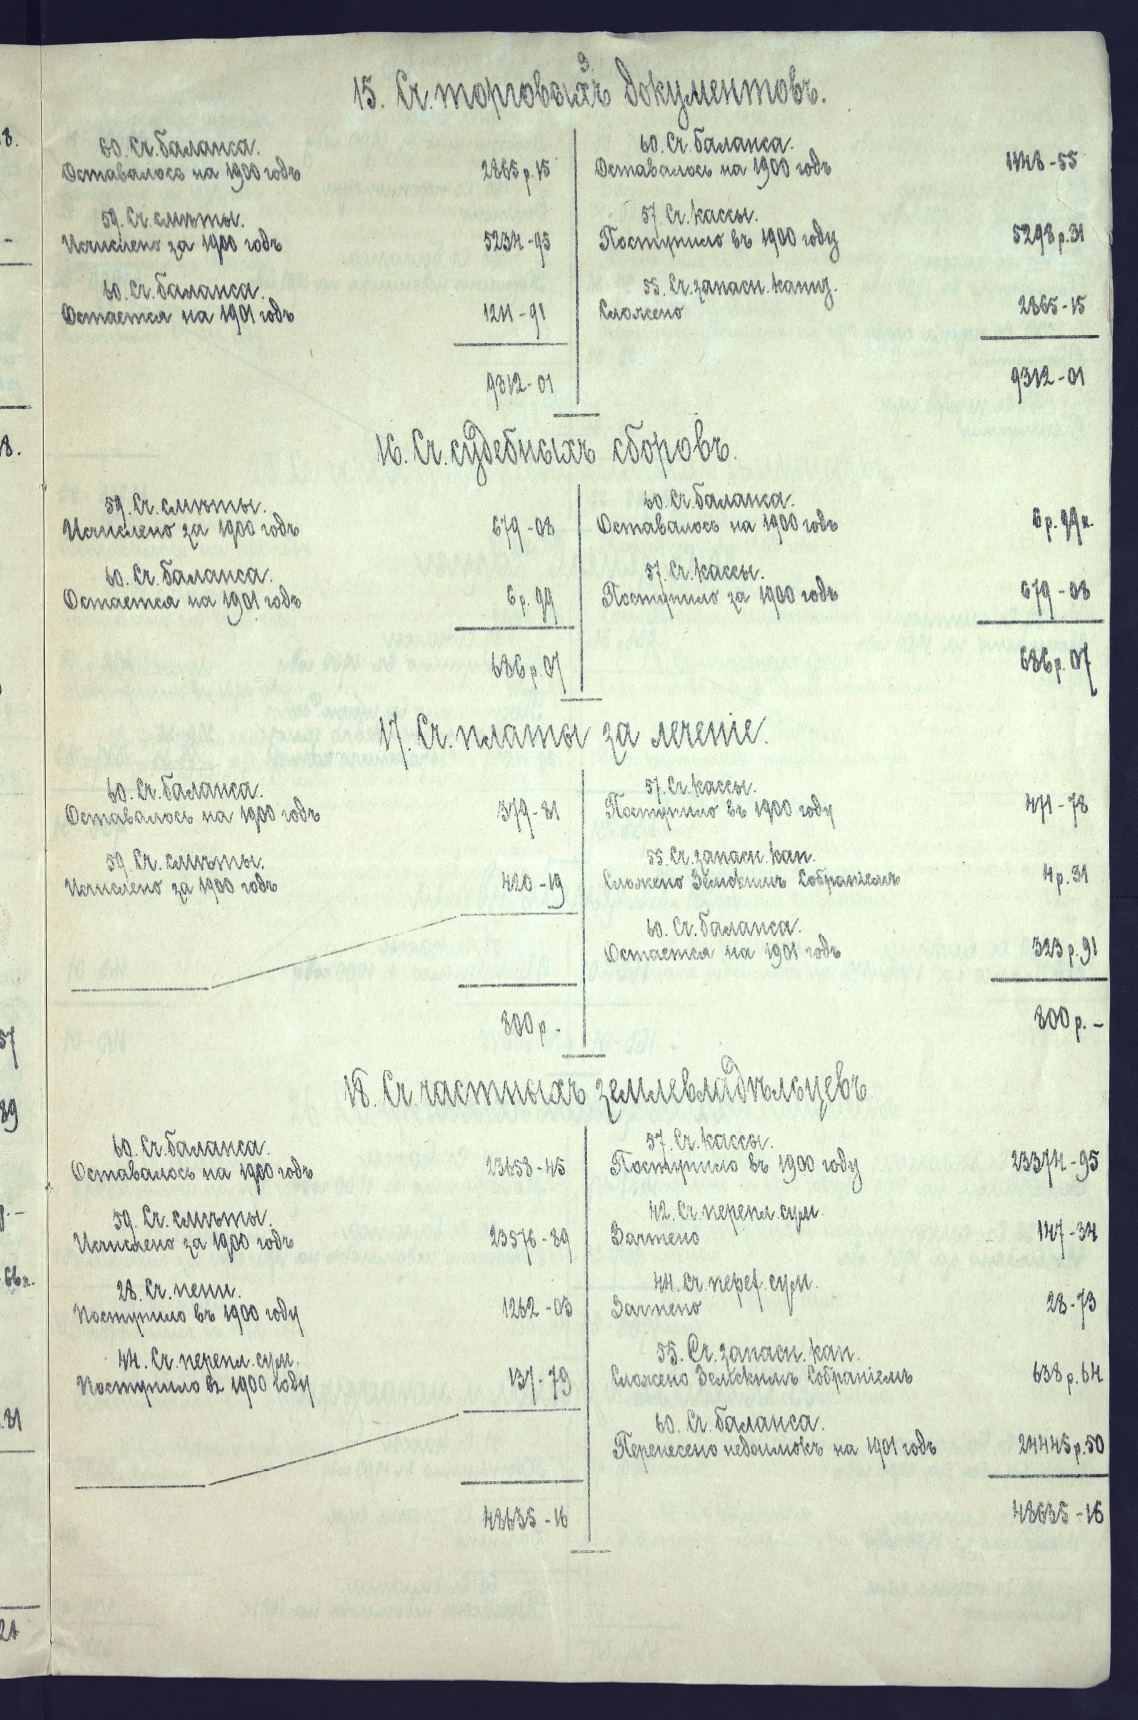 3
15. Сч. торговыхъ документовъ.
60. Сч. баланса.
Оставалось на 1900 годъ 2865 р. 15
59. Сч. смѣты.
Исчислено за 1900 годъ 5234-95
60. Сч. баланса.
Остается на 1901 годъ 1211-91
9312-01
60. Сч. баланса.
Оставалось на 1900 годъ 1148-55
57. Сч. кассы.
Поступило въ 1900 году 5298 р. 31
55. Сч. запасн. капит.
Сложено 2865-15
9312-01
16. Сч. судебныхъ сборовъ.
59. Сч. смѣты.
Исчислено за 1900 годъ 679-08
60. Сч. баланса.
Остается на 1901 годъ 6 р. 99
686 р. 07
60. Сч. баланса.
Оставалось на 1900 годъ 6 р. 99 к.
57. Сч. кассы.
Поступило за 1900 годъ 679-08
686 р. 07
17. Сч. платы за леченіе.
60. Сч. баланса.
Оставалось на 1900 годъ 379-81
59. Сч. смѣты.
Исчислено за 1900 годъ 420-19
800 р. -
57. Сч. кассы.
Поступило въ 1900 году 471-78
55. Сч. запасн. кап.
Сложено Земскимъ Собраніемъ 4 р. 31
60. Сч. баланса.
Остается на 1901 годъ 323 р. 91
800 р. -
18. Сч. частныхъ землевладѣльцевъ
60. Сч. баланса.
Оставалось на 1900 годъ 23658-45
59. Сч. смѣты.
Исчислено за 1900 годъ 23576-89
28. Сч. пени.
Поступило въ 1900 году 1262-03
44. Сч. перепл. сум.
Поступило въ 1900 году 137-79
48635-16
57. Сч. кассы.
Поступило въ 1900 году 23374-95
42. Сч. перепл. сум.
Зачтено 147-34
44. Сч. перех. сум.
Зачтено 28-73
55. Сч. запасн. кап.
Сложено Земскимъ Собраніемъ 638 р. 64
60. Сч. баланса.
Перенесено недоимокъ на 1901 годъ 24445 р. 50
48635-16